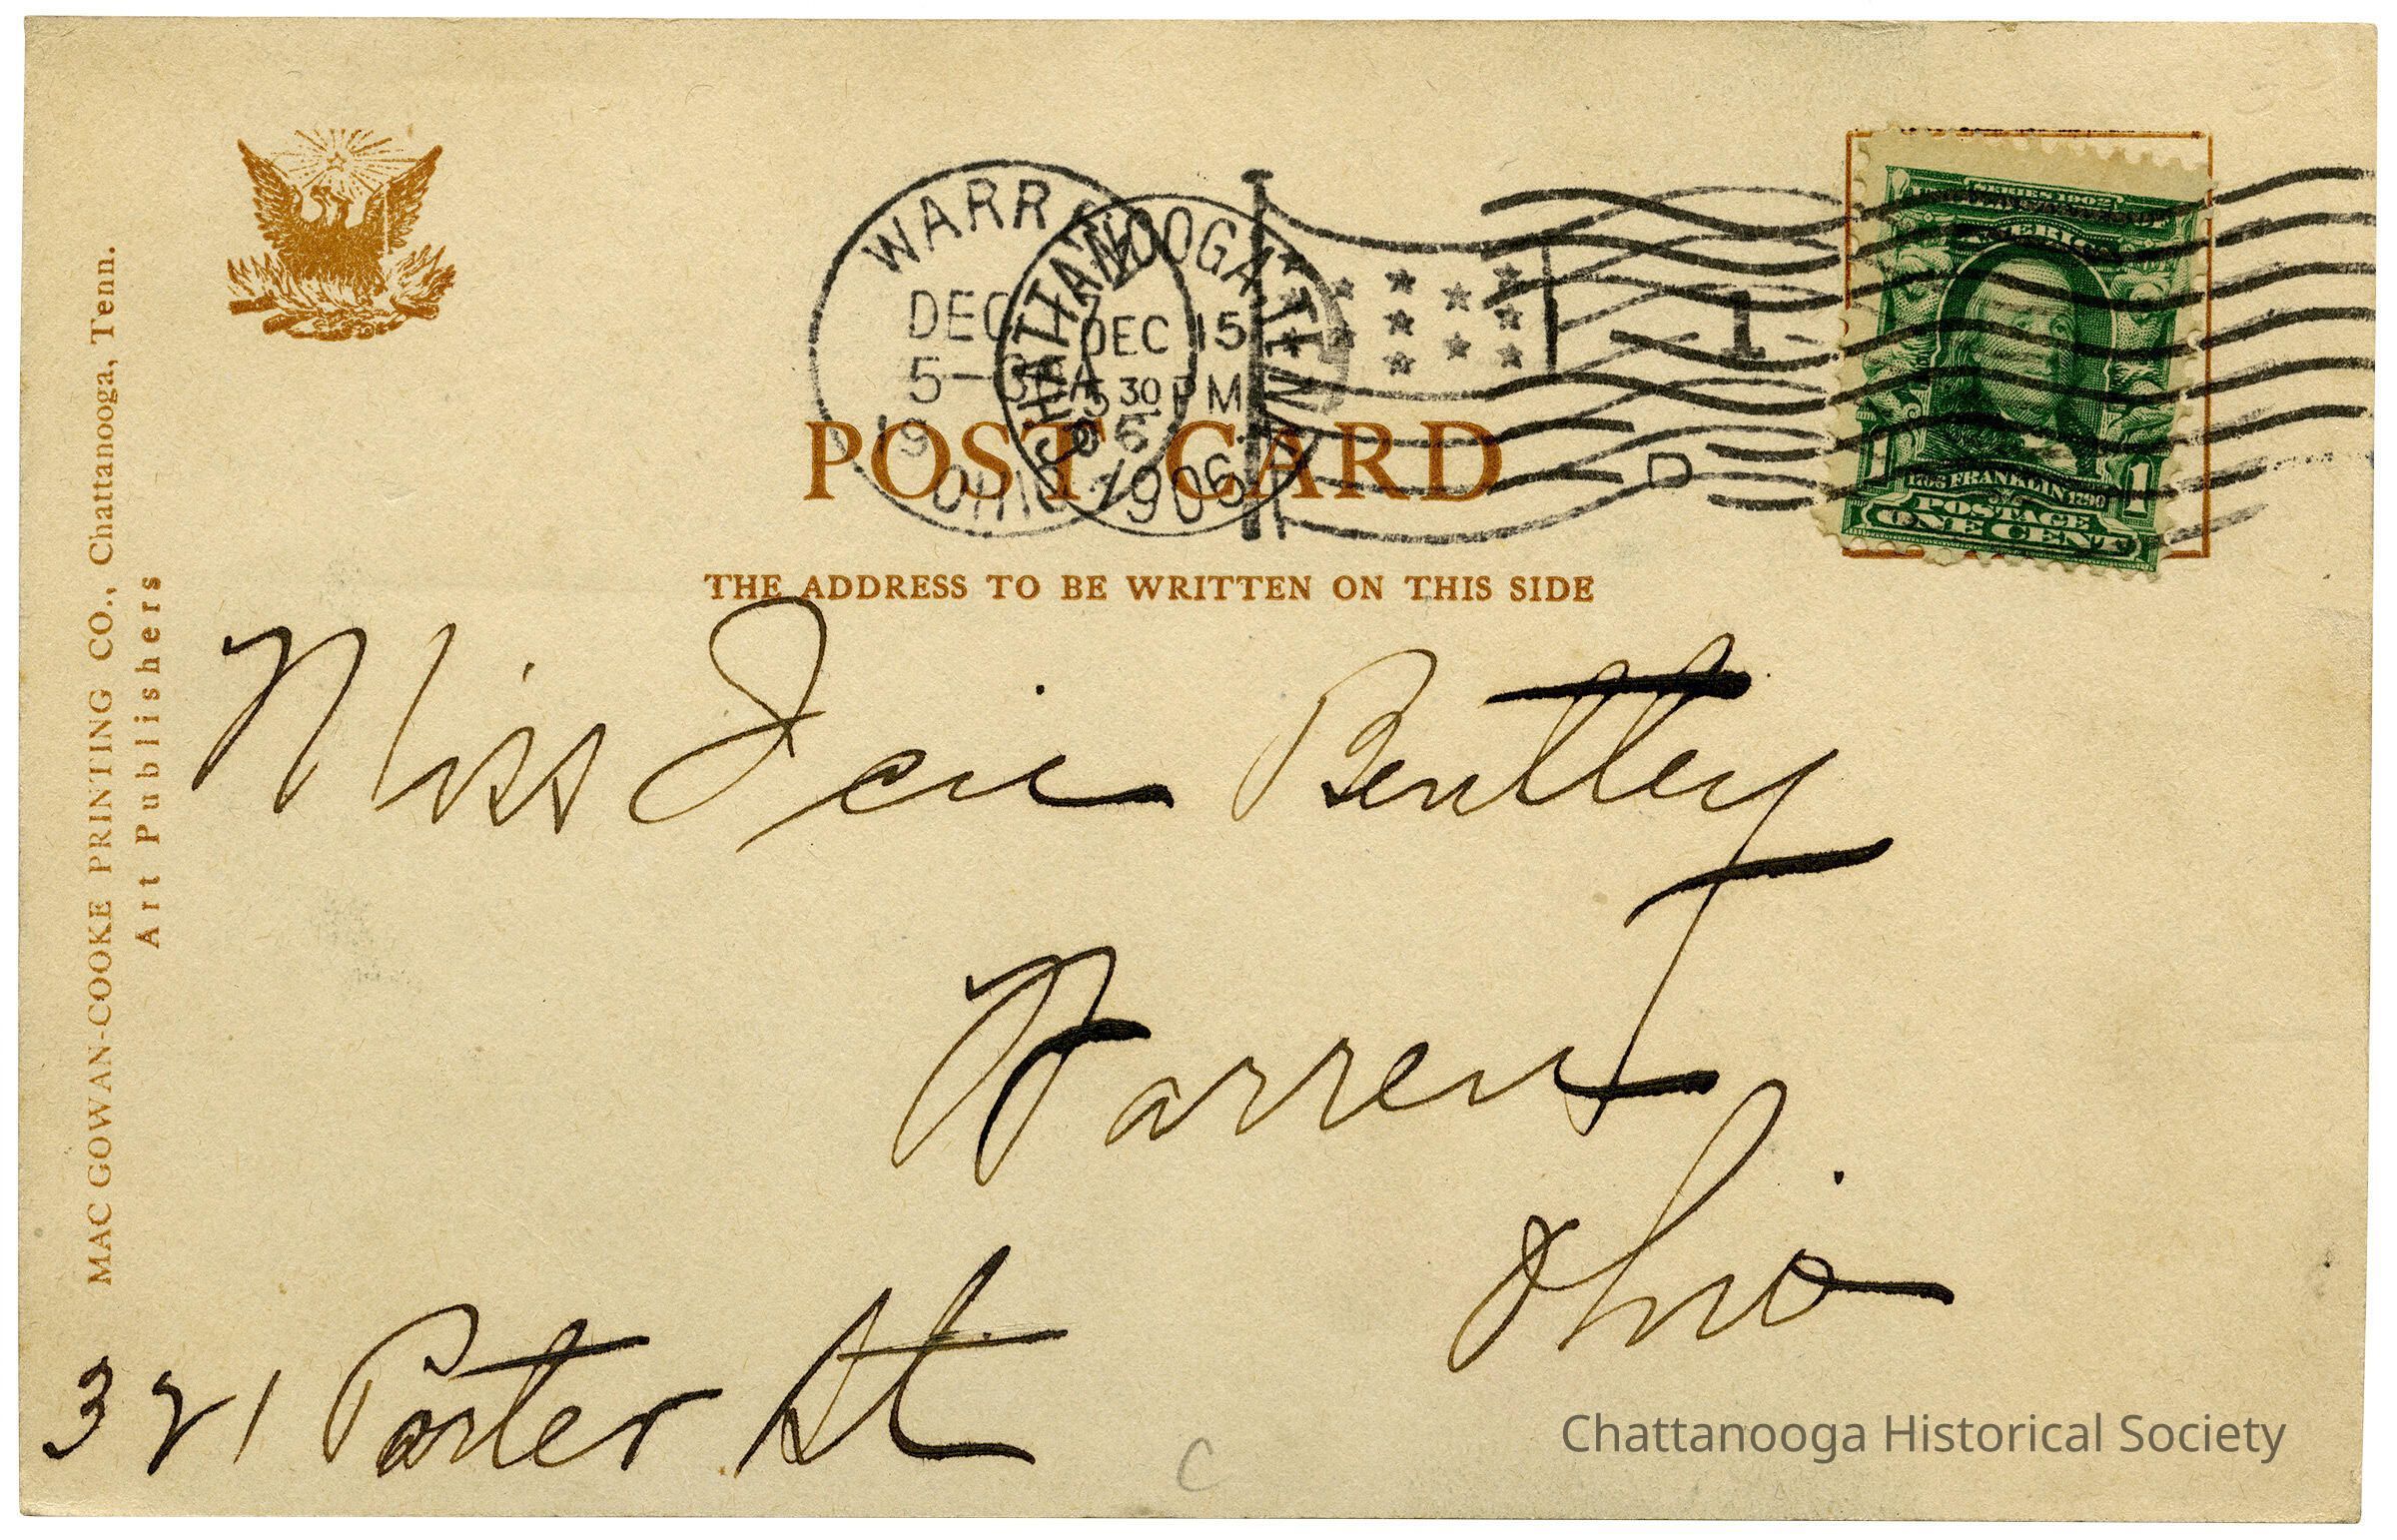 MAC GOWAN-COOKE PRINTING CO., Chattanooga, Tenn.
Art Publishers
WARR
DEC
5-
19
OHIO
CHATTANOOGA, TENN.
DEC 15
5 30 PM
1906
1
D
POST CARD
THE ADDRESS TO BE WRITTEN ON THIS SIDE
SERIES 1902
FRANKLIN
POSTAGE
1 1
ONE CENT
Miss Bentley
Warren
Ohio
321 Porter St
C
Chattanooga Historical Society